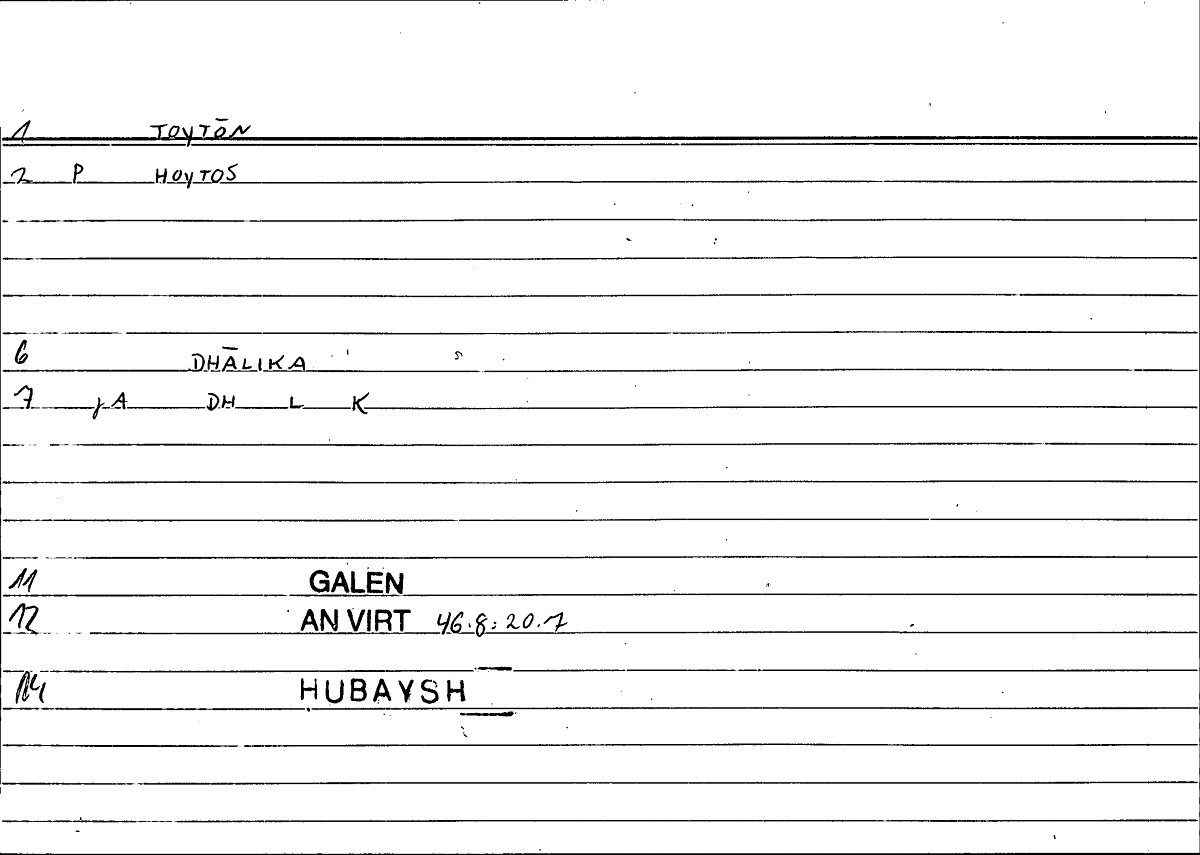 1 TOYTŌN
2 P HOYTOS
6 DHĀLIKA
7 jA DH L K
11 GALEN
12 AN VIRT 46.8:20.7
14 HUBAYSH